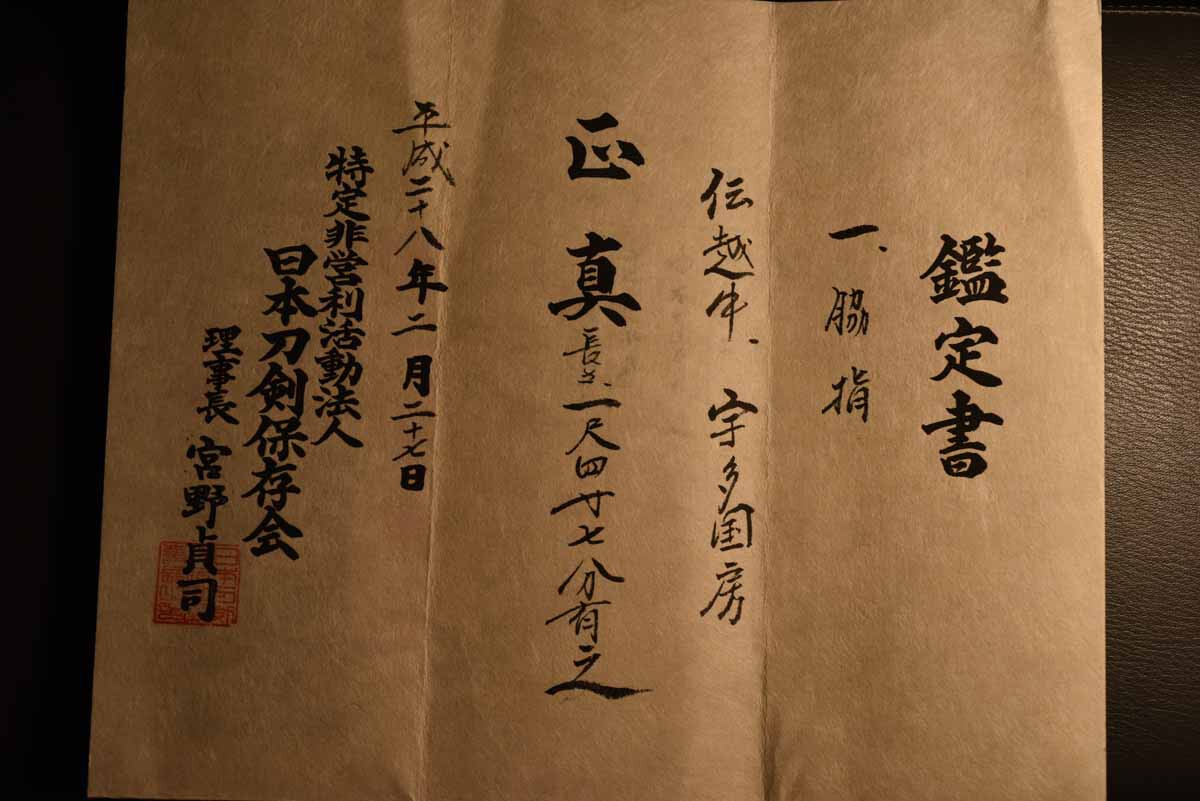 鑑定書
一、脇指
伝越中、宇多国房
正真
長さ、一尺四寸七分有之
平成二十八年二月二十七日
特定非営利活動法人
日本刀剣保存会
理事長 宮野貞司